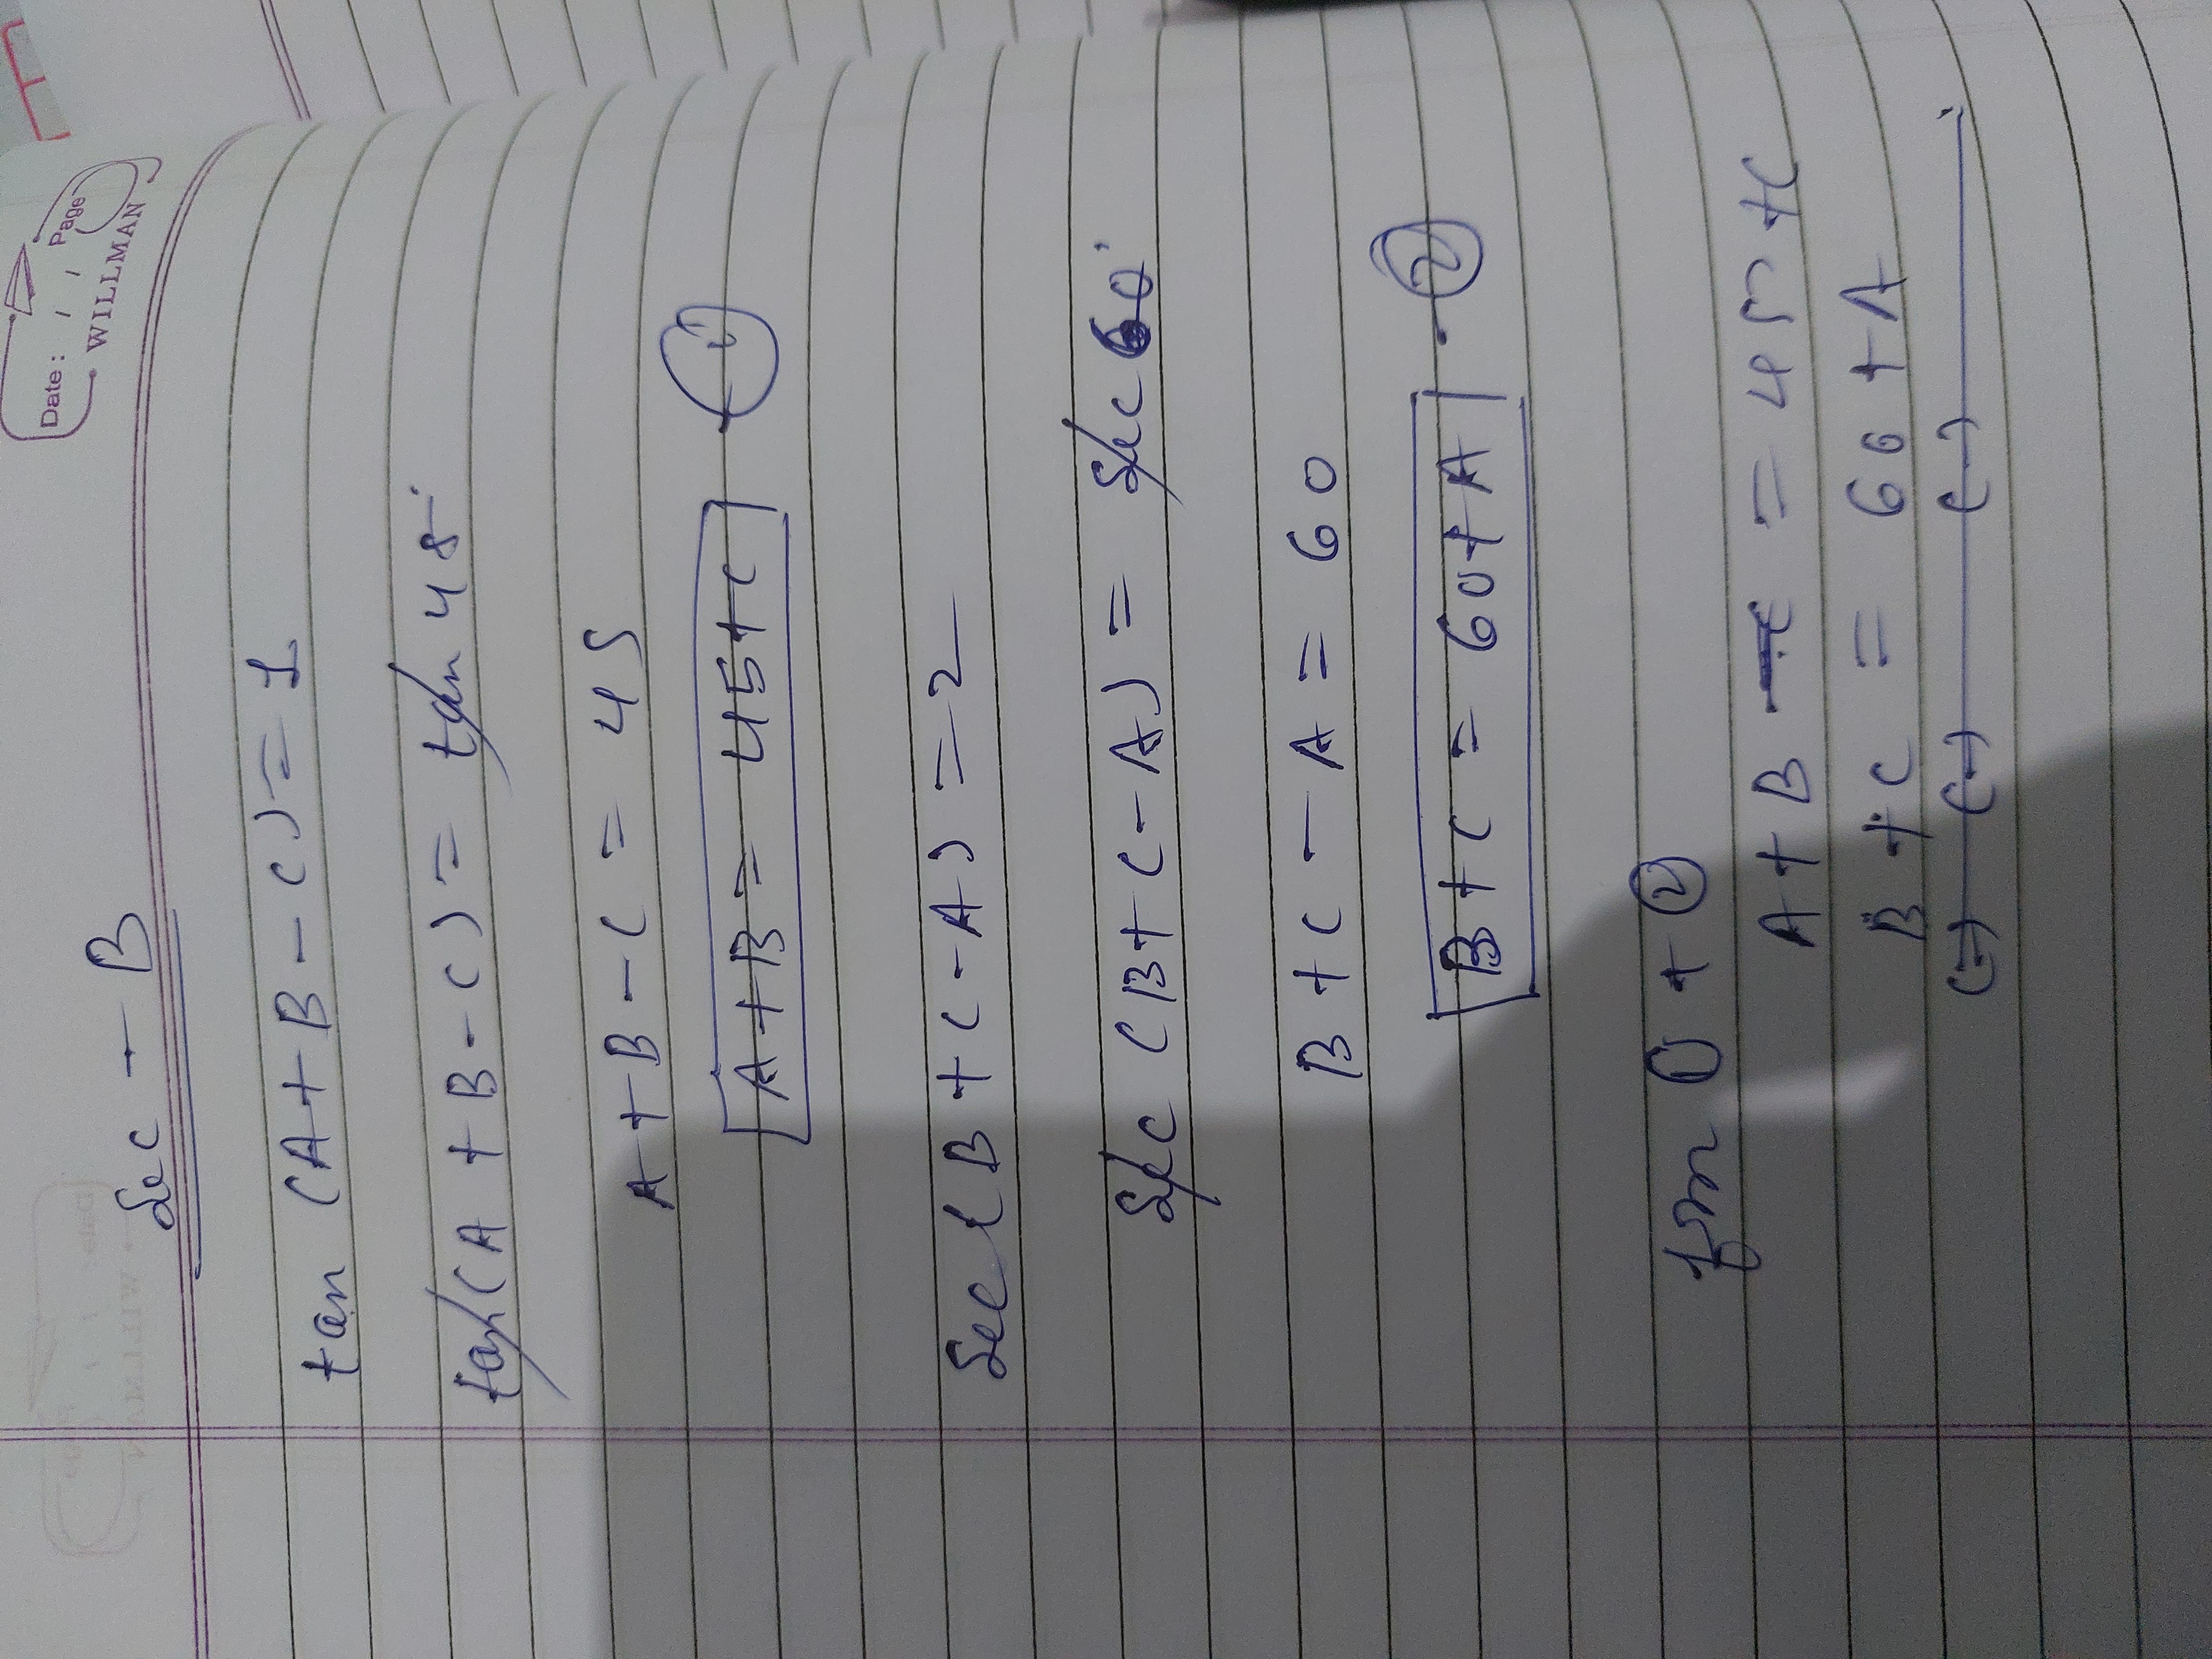 Date: / / Page
WILLMAN
Sec - B
tan (A+B-C) = 1
tan (A+B-C) = tan 45°
A+B-C = 45
A+B = 45+C - (1)
Sec (B+C-A) = 2
Sec (B+C-A) = Sec 60°
B+C-A = 60
B+C = 60+A . (2)
from (1) + (2)
A+B = 45+C
B+C = 60+A
(-) (-) (-)